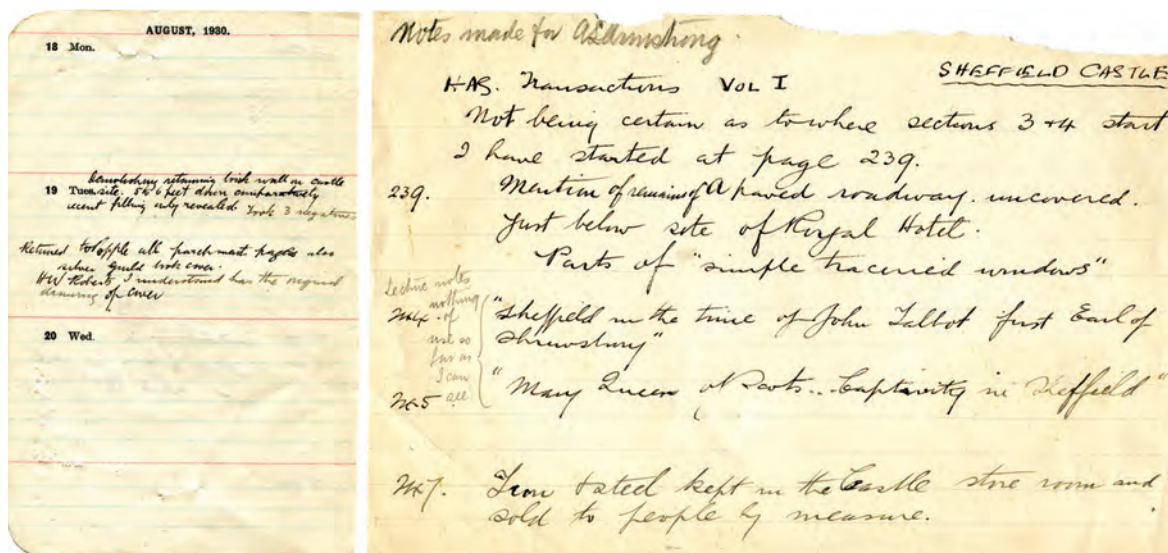 AUGUST, 1930.
18 Mon.
Demolishing retaining brick wall on castle
19 Tues. site. 5 to 6 feet down comparatively
recent filling only revealed. Took 3 negatives
Returned to Apple all parchment pages also
silver guild book cover.
HW Roberts I understand has the original
drawing of cover
20 Wed.
Notes made for A L Armstrong.
SHEFFIELD CASTLE
H.A.S. Transactions VOL I
Not being certain as to where sections 3 + 4 start
I have started at page 239.
239. Mention of remains of A paved roadway. uncovered.
Just below site of Royal Hotel.
Parts of "simple traceried windows"
Lecture notes
nothing
of
use so
far as
I can
see
"Sheffield in the time of John Talbot first Earl of
Shrewsbury"
"Mary Queen of Scots.. Captivity in Sheffield"
247. Iron & steel kept in the Castle store room and
sold to people by measure.